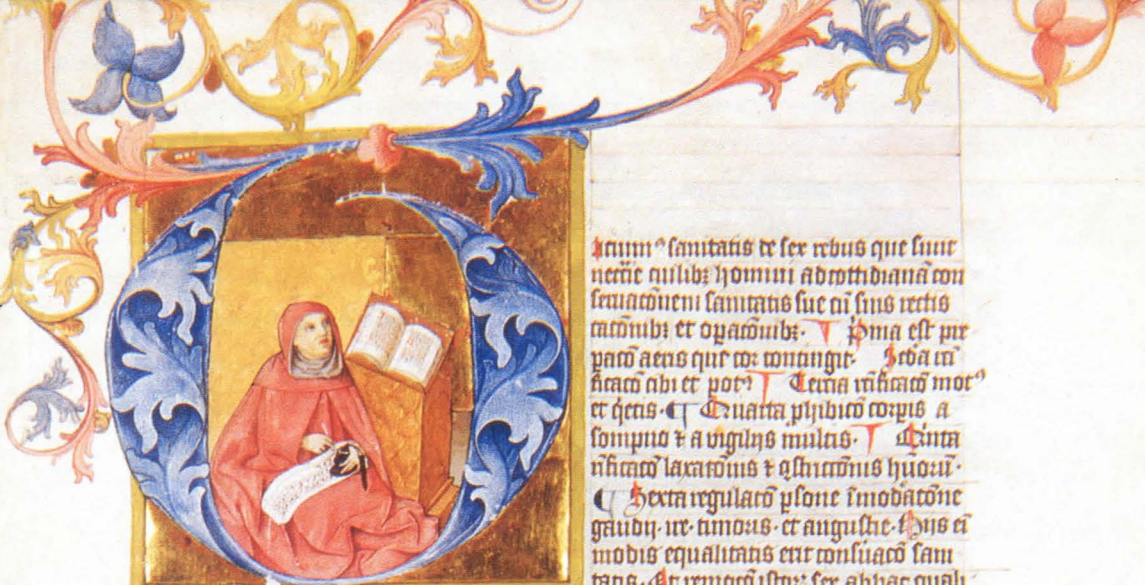 sanitatis de sex rebus que sunt
necc̄ie cuilibꝫ homini ad cottidianā con
seruacōnem sanitatis sue cū suis rectifi
cacōnibꝫ et opacōnibꝫ. ¶ Pͥma est pre
pacō aeris que cor contingit. Scd̄a rc̄i
ficacō cibi et potꝰ ¶ Tercia rc̄ificacō motꝰ
et qͥetis. ¶ Quarta ꝓhibicō corpis a
sompno ⁊ a vigilijs multis. ¶ Quinta
rc̄ificacō laxacōnis ⁊ ꝯstriccōnis huorū.
¶ Sexta regulacō ꝑsone ī modacōne
gaudij. ire. timoris. et angustie. Hijs eī
modis equalitatis erit conẜuacō sani
tatis. Et remocō istoꝝ sex ab hac quali